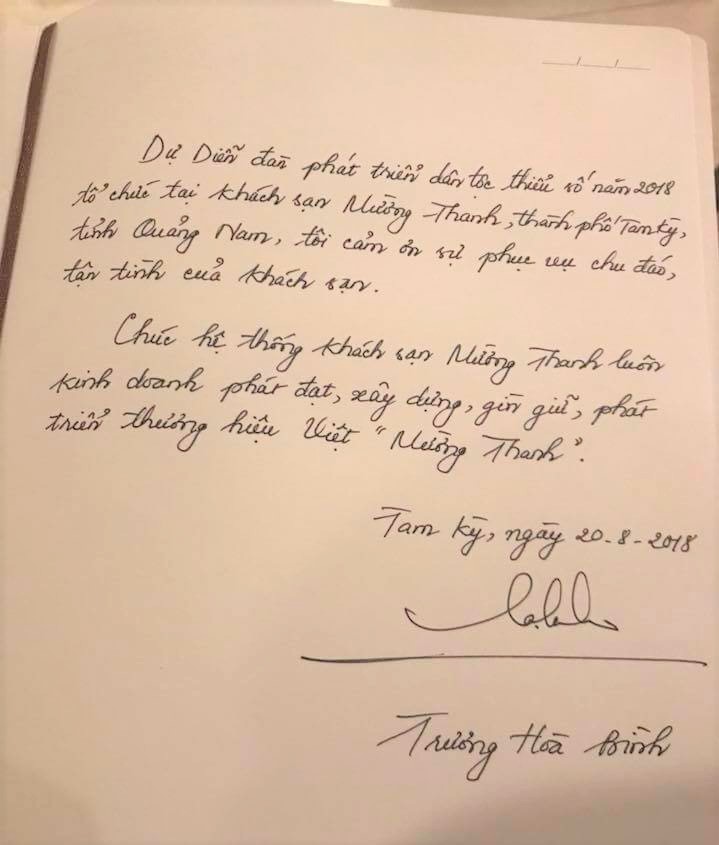 Dự Diễn đàn phát triển dân tộc thiểu số năm 2018
tổ chức tại khách sạn Mường Thanh, thành phố Tam Kỳ,
tỉnh Quảng Nam, tôi cảm ơn sự phục vụ chu đáo,
tận tình của khách sạn.
Chúc hệ thống khách sạn Mường Thanh luôn
kinh doanh phát đạt, xây dựng, gìn giữ, phát
triển thương hiệu Việt "Mường Thanh".
Tam Kỳ, ngày 20-8-2018
Trương Hoà Bình